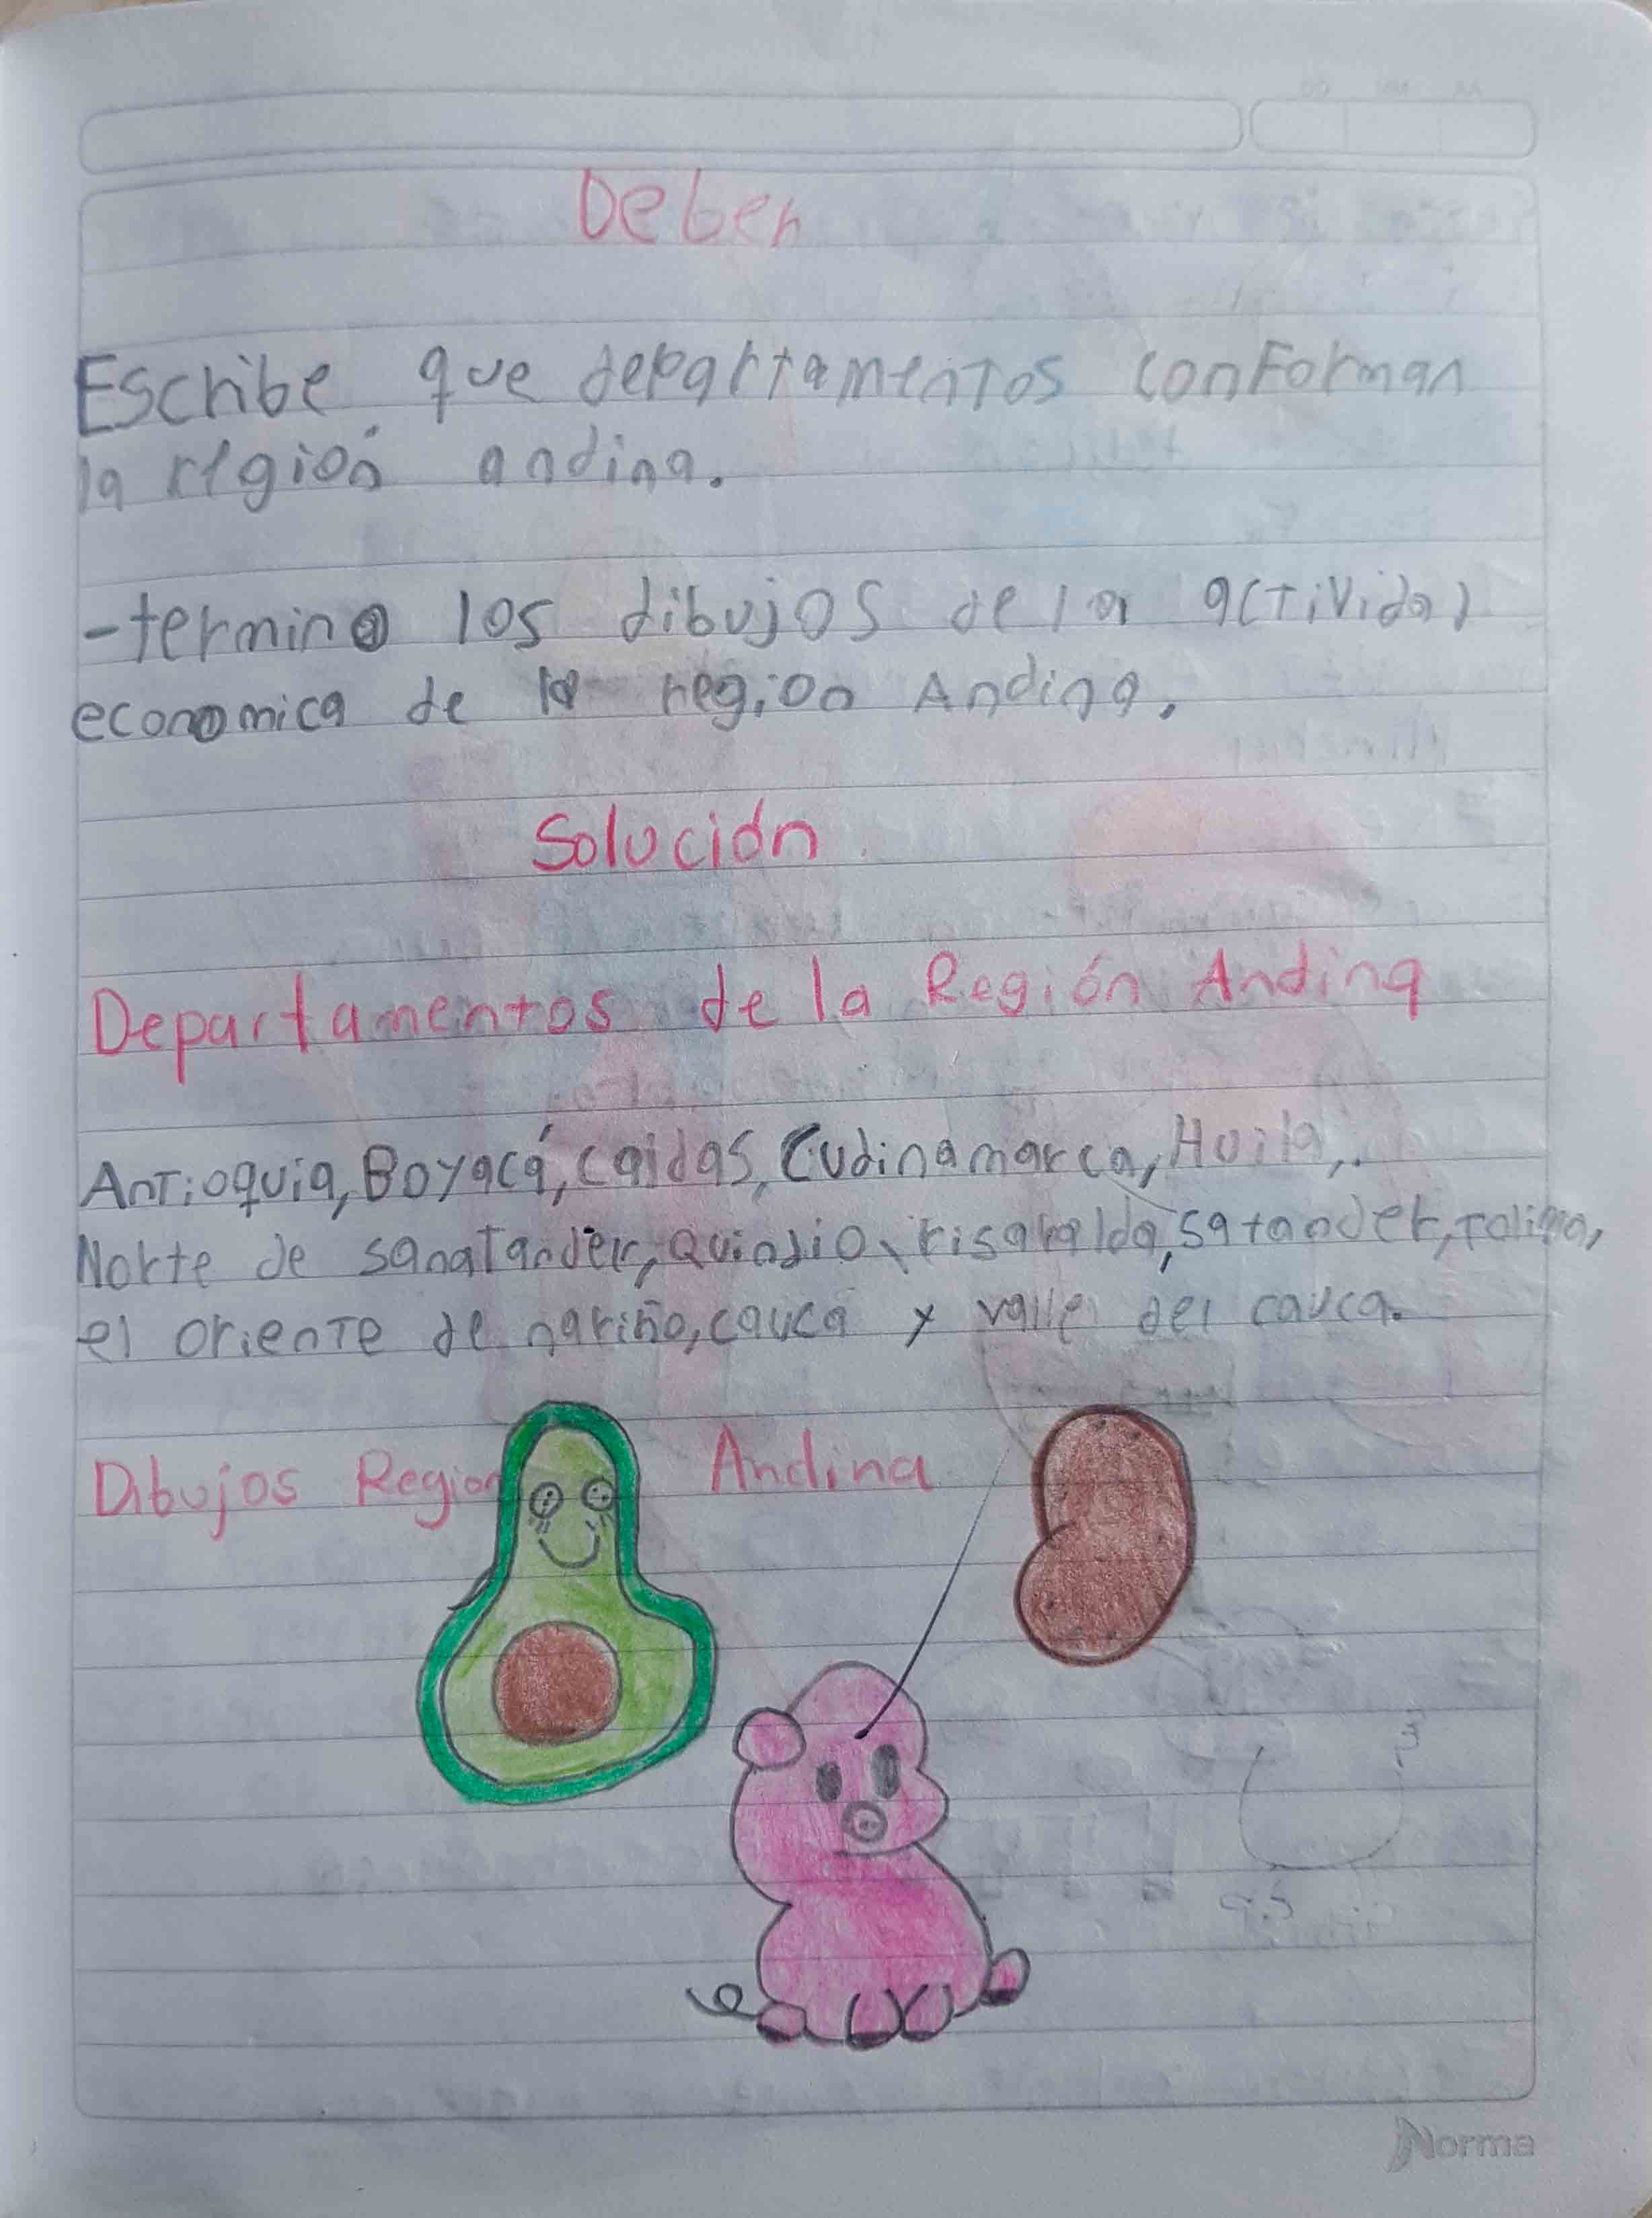 Deber
Escribe que departamentos conforman
la región andina.
-termino los dibujos de la actividad
economica de la region Andina.
Solución
Departamentos de la Región Andina
Antioquia, Boyacá, caldas, Cudinamarca, Huila,.
Norte de sanatander, Quindio, risaralda, satander, tolima,
el oriente de nariño, cauca y valle del cauca.
Dibujos Region Andina
Norma